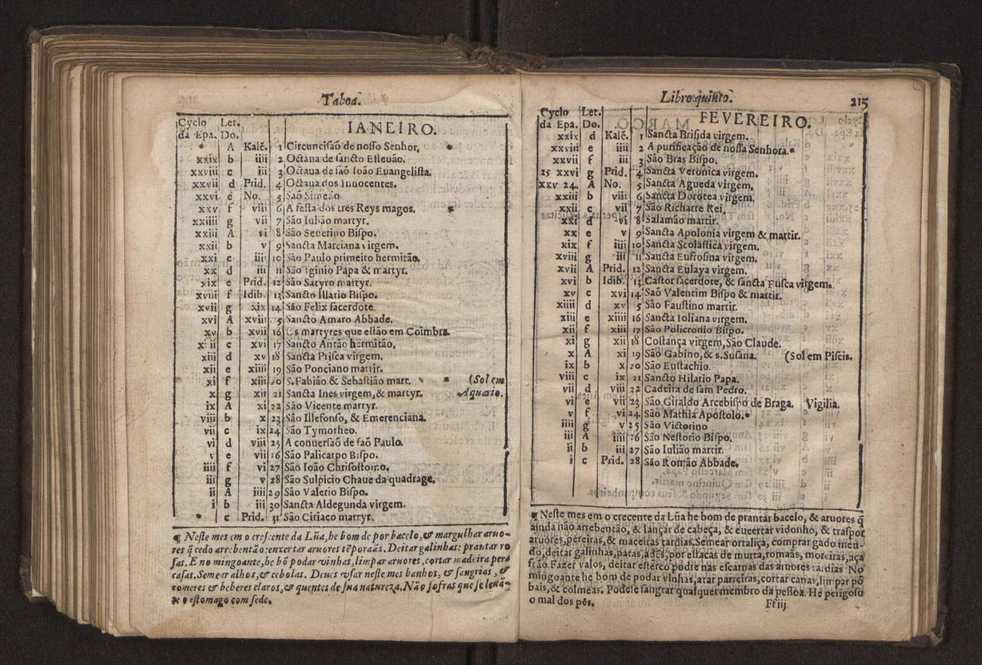 Taboa.
Cyclo Let. IANEIRO.
da Epa. Do.
* A Kalẽ. 1 Circuncisaõ de nosso Senhor. *
xxix b iiii 2 Octaua de sancto Esteuão.
xxviii c iii 3 Octaua de saõ Ioão Euangelista.
xxvii d Prid. 4 Octaua dos Innocentes.
xxvi e No. 5 Saõ Simeão.
xxv f viii 6 A festa dos tres Reys magos. *
xxiiii g vii 7 São Iulião martyr.
xxiii A vi 8 São Seuerino Bispo.
xxii b v 9 Sancta Marciana virgem.
xxi c iiii 10 São Paulo primeiro hermitão.
xx d iii 11 São Iginio Papa & martyr.
xix e Prid. 12 São Satyro martyr.
xviii f Idib. 13 Sancto Illario Bispo.
xvii g xix 14 São Felix sacerdote.
xvi A xviii 15 Sancto Amaro Abbade.
xv b xvii 16 Os martyres que estão em Coimbra.
xiiii c xvi 17 Sancto Antão hermitão.
xiii d xv 18 Sancta Prisca virgem.
xii e xiiii 19 São Ponciano martir.
xi f xiii 20 S. Fabião & Sebastião mart. * (Sol em
x g xii 21 Sancta Ines virgem, & martyr. Aquario.
ix A xi 22 São Vicente martyr.
viii b x 23 São Illefonso, & Emerenciana.
vii c ix 24 São Tymotheo.
vi d viii 25 A conuersaõ de saõ Paulo.
v e vii 26 São Palicarpo Bispo.
iiii f vi 27 São Ioão Chrisostomo.
iii g v 28 São Sulpicio Chaue da quadrage.
ii A iiii 29 São Valerio Bispo.
i b iii 30 Sancta Aldegunda virgem.
* c Prid. 31 São Ciriaco martyr.
¶ Neste mes em o crescente da Lũa, he bom de por bacelo, & margulhar aruo-
res q̃ cedo arrebentão: enxertar aruores tẽporaãs. Deitar galinhas: prantar ro
sas. E no mingoante, he bõ podar vinhas, limpar aruores, cortar madeira pera
casas. Semear alhos, & cebolas. Deues vsar neste mes banhos, & sangrias, &
comeres & beberes claros, & quentes de sua natureza. Não sofras que se leuã-
te o estomago com sede.
Libro quinto. 215
Cyclo Let. FEVEREIRO.
da Epa. Do.
xxix d Kalẽ. 1 Sancta Brisida virgem.
xxviii e iiii 2 A purificação de nossa Senhora. *
xxvii f iii 3 São Bras Bispo.
25 xxvi g Prid. 4 Sancta Veronica virgem.
xxv 24. A No. 5 Sancta Agueda virgem.
xxiii b viii 6 Sancta Dorotea virgem.
xxii c vii 7 São Richarte Rei.
xxi d vi 8 Salamão martir.
xx e v 9 Sancta Apolonia virgem & martir.
xix f iiii 10 Sancta Scolastica virgem.
xviii g iii 11 Sancta Eufrosina virgem.
xvii A Prid. 12 Sancta Eulaya virgem.
xvi b Idib. 13 Castor sacerdote, & sancta Fusca virgem.
xv c xvi 14 Saõ Valentim Bispo & martir.
xiiii d xv 15 São Faustino martir.
xiii e xiiii 16 Sancta Ioliana virgem.
xii f xiii 17 São Policronio Bispo.
xi g xii 18 Costança virgem, São Claude.
x A xi 19 São Gabino, & s. Susana. (Sol em Piscis.
ix b x 20 São Eustachio.
viii c ix 21 Sancto Hilario Papa.
vii d viii 22 Cadeira de sam Pedro.
vi e vii 23 São Giraldo Arcebispo de Braga. Vigilia.
v f vi 24 São Mathia Apostolo. *
iiii g v 25 São Victorino
iii A iiii 26 São Nestorio Bispo.
ii b iii 27 São Iulião martir.
i c Prid. 28 São Romão Abbade.
¶ Neste mes em o crecente da Lũa he bom de prantar bacelo, & aruores q̃
ainda não arrebentão, & lançar de cabeça, & enxertar vidonho, & traspor
aruores, pereiras, & maceiras tardias. Semear ortaliça, comprar gado meu-
do, deitar galinhas, patas, adẽs, por estacas de murta, romaãs, moreiras, aça
frão. Fazer valos, deitar esterco podre nas escauas das aruores tardias No
mingoante he bom de podar vinhas, atar parreiras, cortar canas, limpar põ
bais, & colmeas. Podese sangrar qualquer membro da pessoa. He perigoso
o mal dos pès. Ff iij